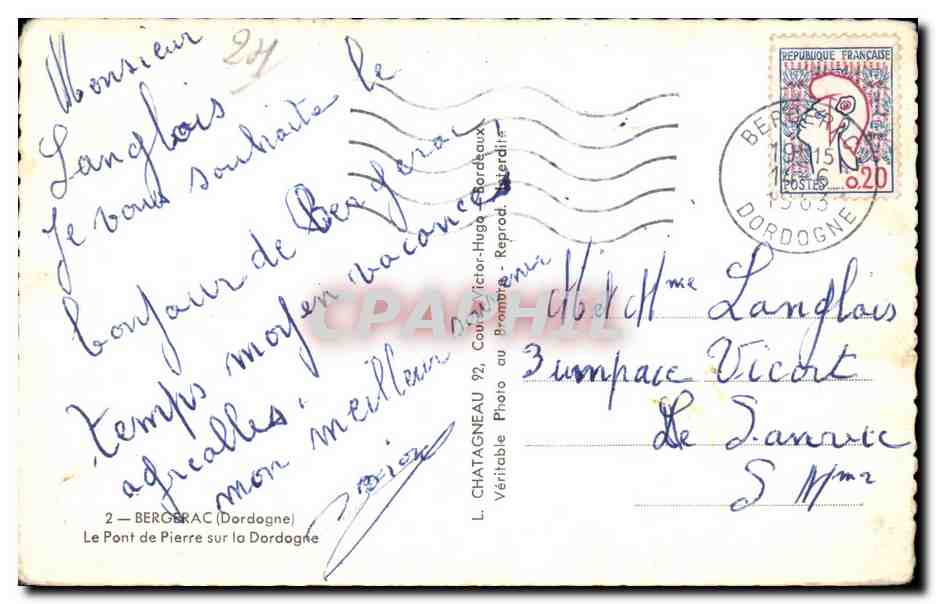 24
Monsieur
Langlois
Je vous souhaite le
bonjour de Bergerac,
temps moyen vacances
agrealles.
mon meilleur souvenir
2 — BERGERAC (Dordogne)
Le Pont de Pierre sur la Dordogne
L. CHATAGNEAU 92, Cours Victor-Hugo - Bordeaux
Véritable Photo au Bromure - Reprod. Interdite
CPAPHIL
REPUBLIQUE FRANÇAISE
POSTES
0.20
BERGERAC
19H15
14-6
1963
DORDOGNE
M et Mme Langlois
3 impace Vicort
Le Sanvic
S Mme